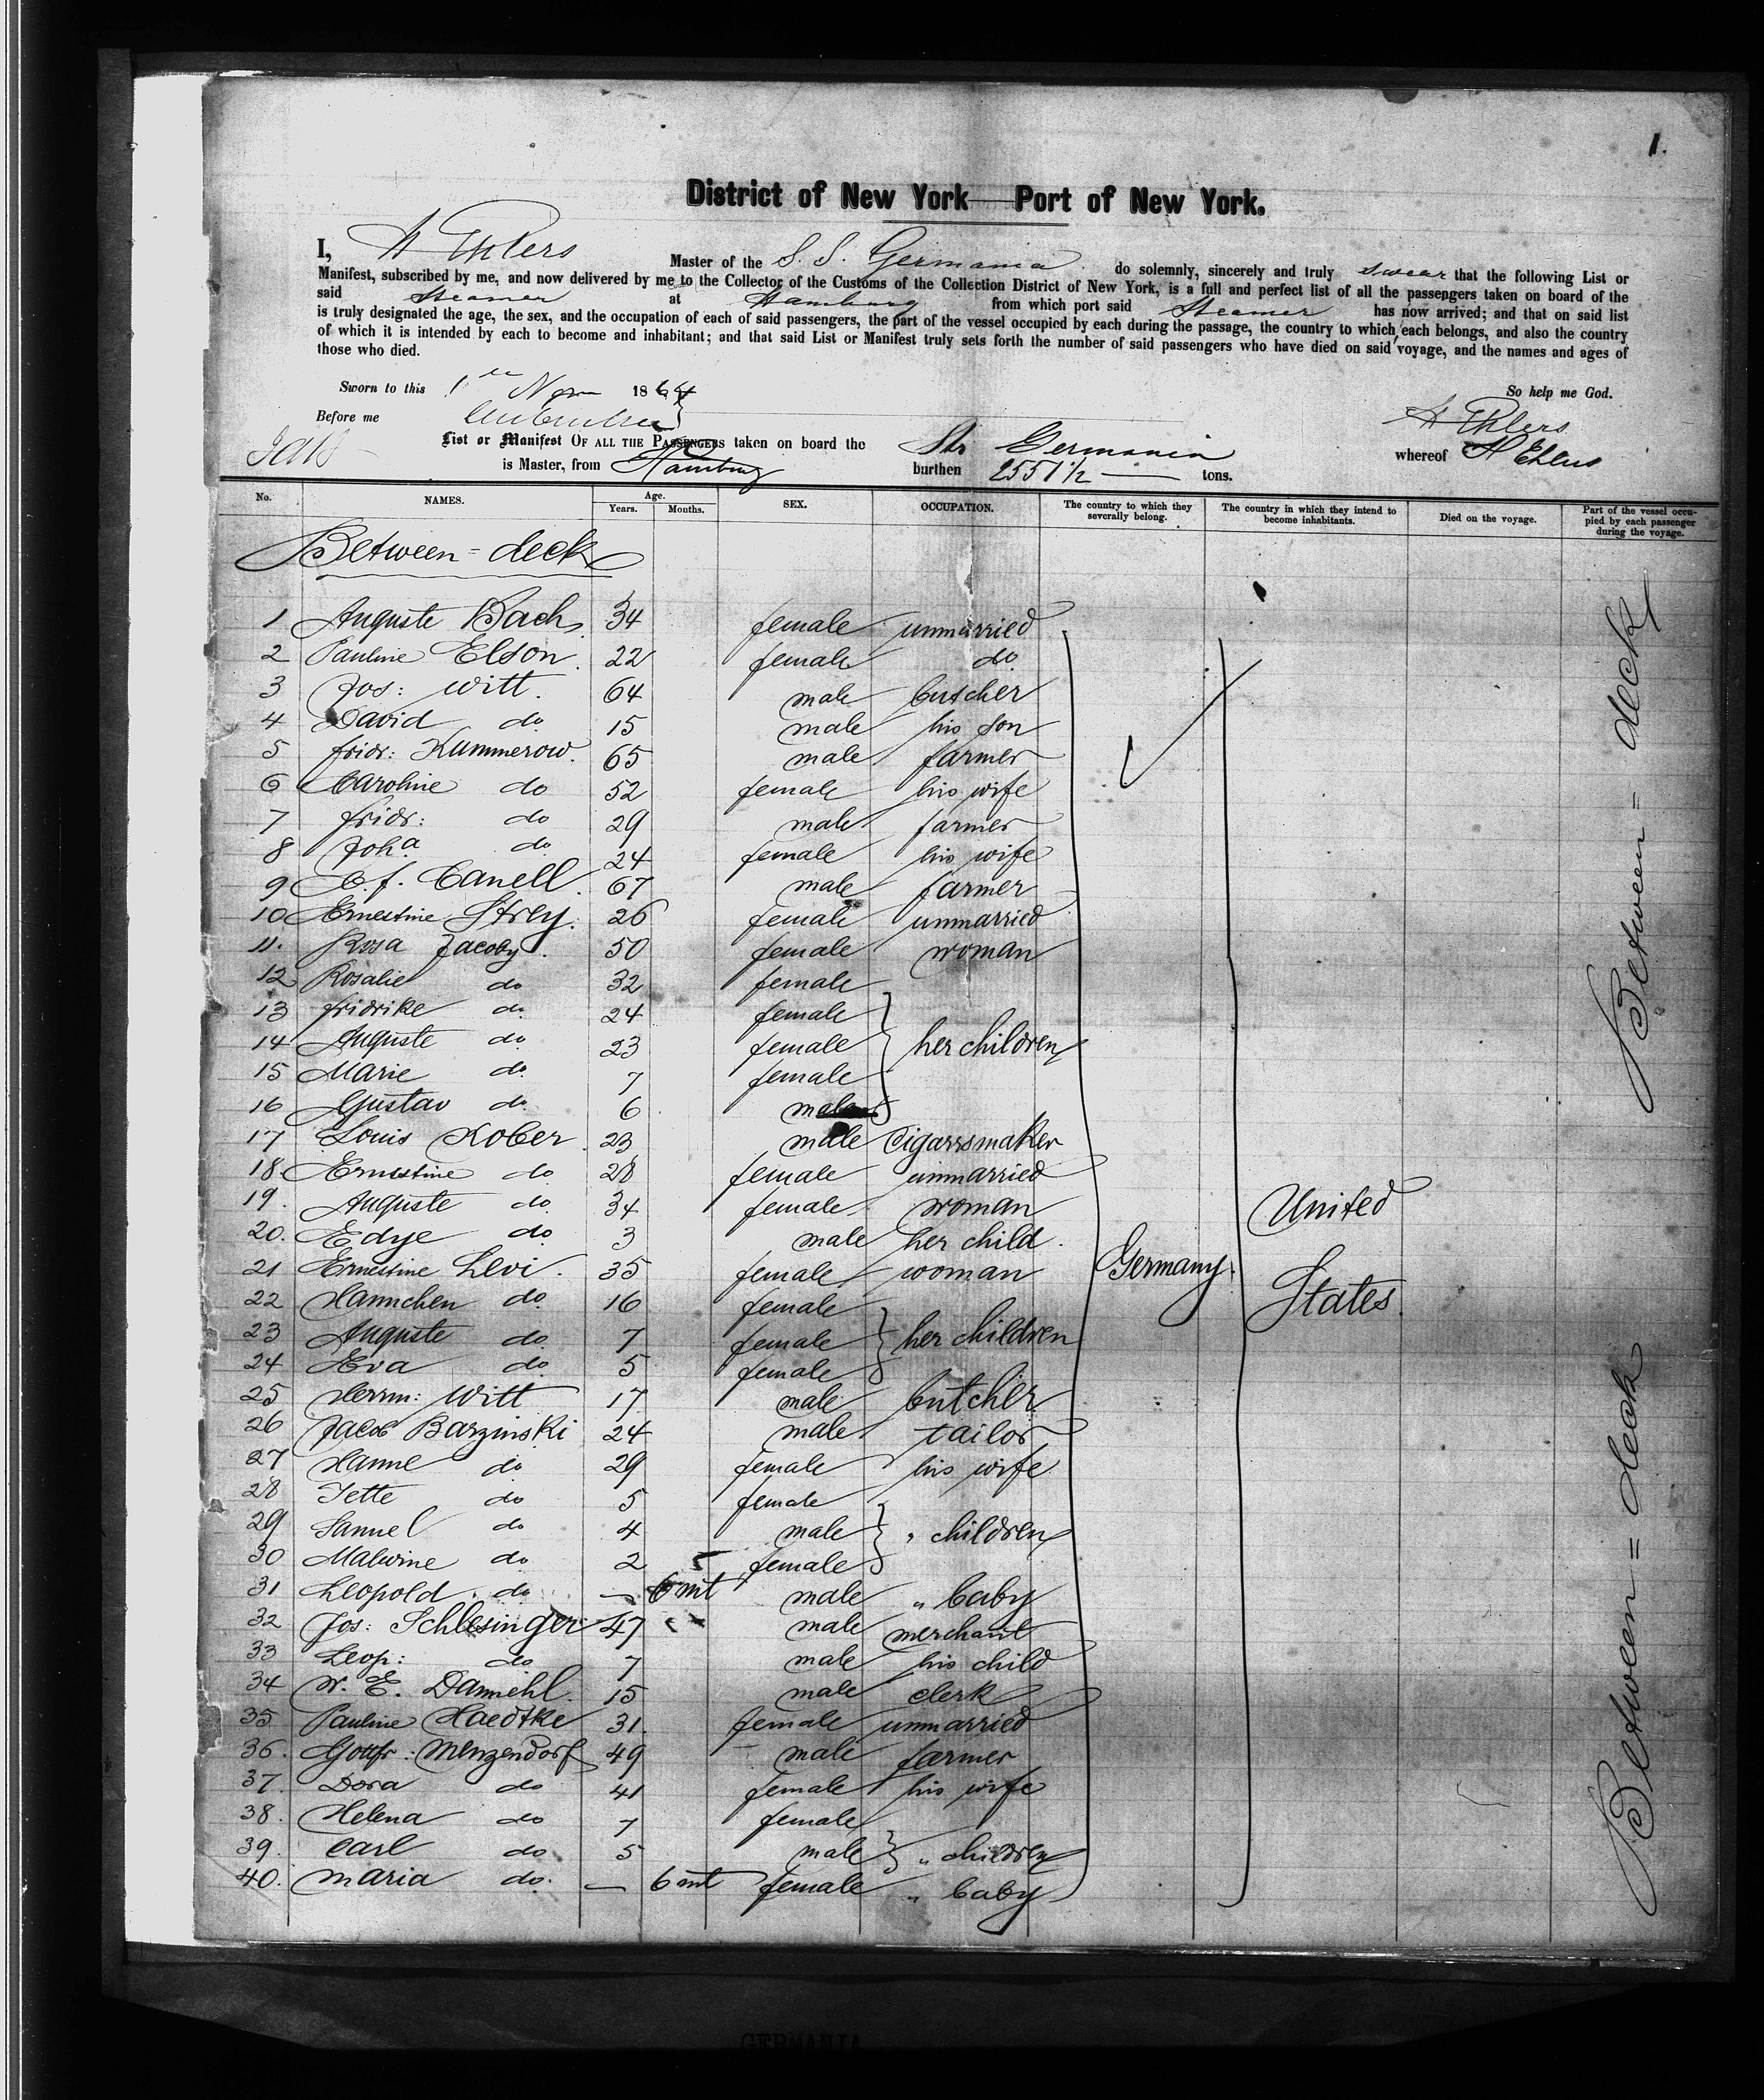 1.
District of New York—Port of New York.
I, H Ehlers Master of the S. S. Germania do solemnly, sincerely and truly swear that the following List or
Manifest, subscribed by me, and now delivered by me to the Collector of the Customs of the Collection District of New York, is a full and perfect list of all the passengers taken on board of the
said Steamer at Hamburg from which port said Steamer has now arrived; and that on said list
is truly designated the age, the sex, and the occupation of each of said passengers, the part of the vessel occupied by each during the passage, the country to which each belongs, and also the country
of which it is intended by each to become and inhabitant; and that said List or Manifest truly sets forth the number of said passengers who have died on said voyage, and the names and ages of
those who died.
Sworn to this 1 Nov 1864 So help me God.
Before me H Ehlers
List or Manifest OF ALL THE PASSENGERS taken on board the Str Germania whereof H Ehlers
is Master, from Hamburg burthen 2551 1/2 tons.
No. NAMES. Age. Years. Months. SEX. OCCUPATION. The country to which they severally belong. The country in which they intend to become inhabitants. Died on the voyage. Part of the vessel occupied by each passenger during the voyage.
Between=deck
1 Auguste Bach 34 female unmarried
2 Pauline Elson 22 female do
3 Jos: Witt. 64 male butcher
4 David do 15 male his son
5 fridr: Kummerow. 65 male farmer
6 Caroline do 52 female his wife
7 fridr: do 29 male farmer
8 Joha do 24 female his wife
9 C. f. Canell 67 male farmer
10 Ernestine Strey. 26 female unmarried
11. Rosa Jacoby. 50 female woman
12 Rosalie do 32 female
13 fridrike do 24 female
14 Auguste do 23 female her children
15 Marie do 7 female
16 Gustav do 6 male
17 Louis Kober 23 male Cigarrsmaker
18. Ernestine do 28 female unmarried
19. Auguste do 34 female woman
20. Edye do 3 male her child.
21 Ernestine Levi. 35 female woman
22 Hannchen do 16 female
23 Auguste do 7 female her children
24 Eva do 5 female
25 Herrm: Witt 17 male butcher
26 Jacob Barzinski 24 male tailor
27 Hanne do 29 female his wife
28 Jette do 5 female
29 Samuel do 4 male " children
30 Malwine do 2 female
31 Leopold do — 6 mt male " baby
32 Jos: Schlesinger 47 male merchant
33 Leop: do 7 male his child
34 W. E. Damiehl. 15 male clerk
35 Pauline Haedtke 31. female unmarried
36. Gottfr: Menzendorf 49 male farmer
37. Dora do 41 female his wife
38. Helena do 7 female
39. Carl do 5 male " children
40. Maria do. — 6 mt female " baby
Germany.
United
States.
Between = deck
Between = deck
GERMANIA